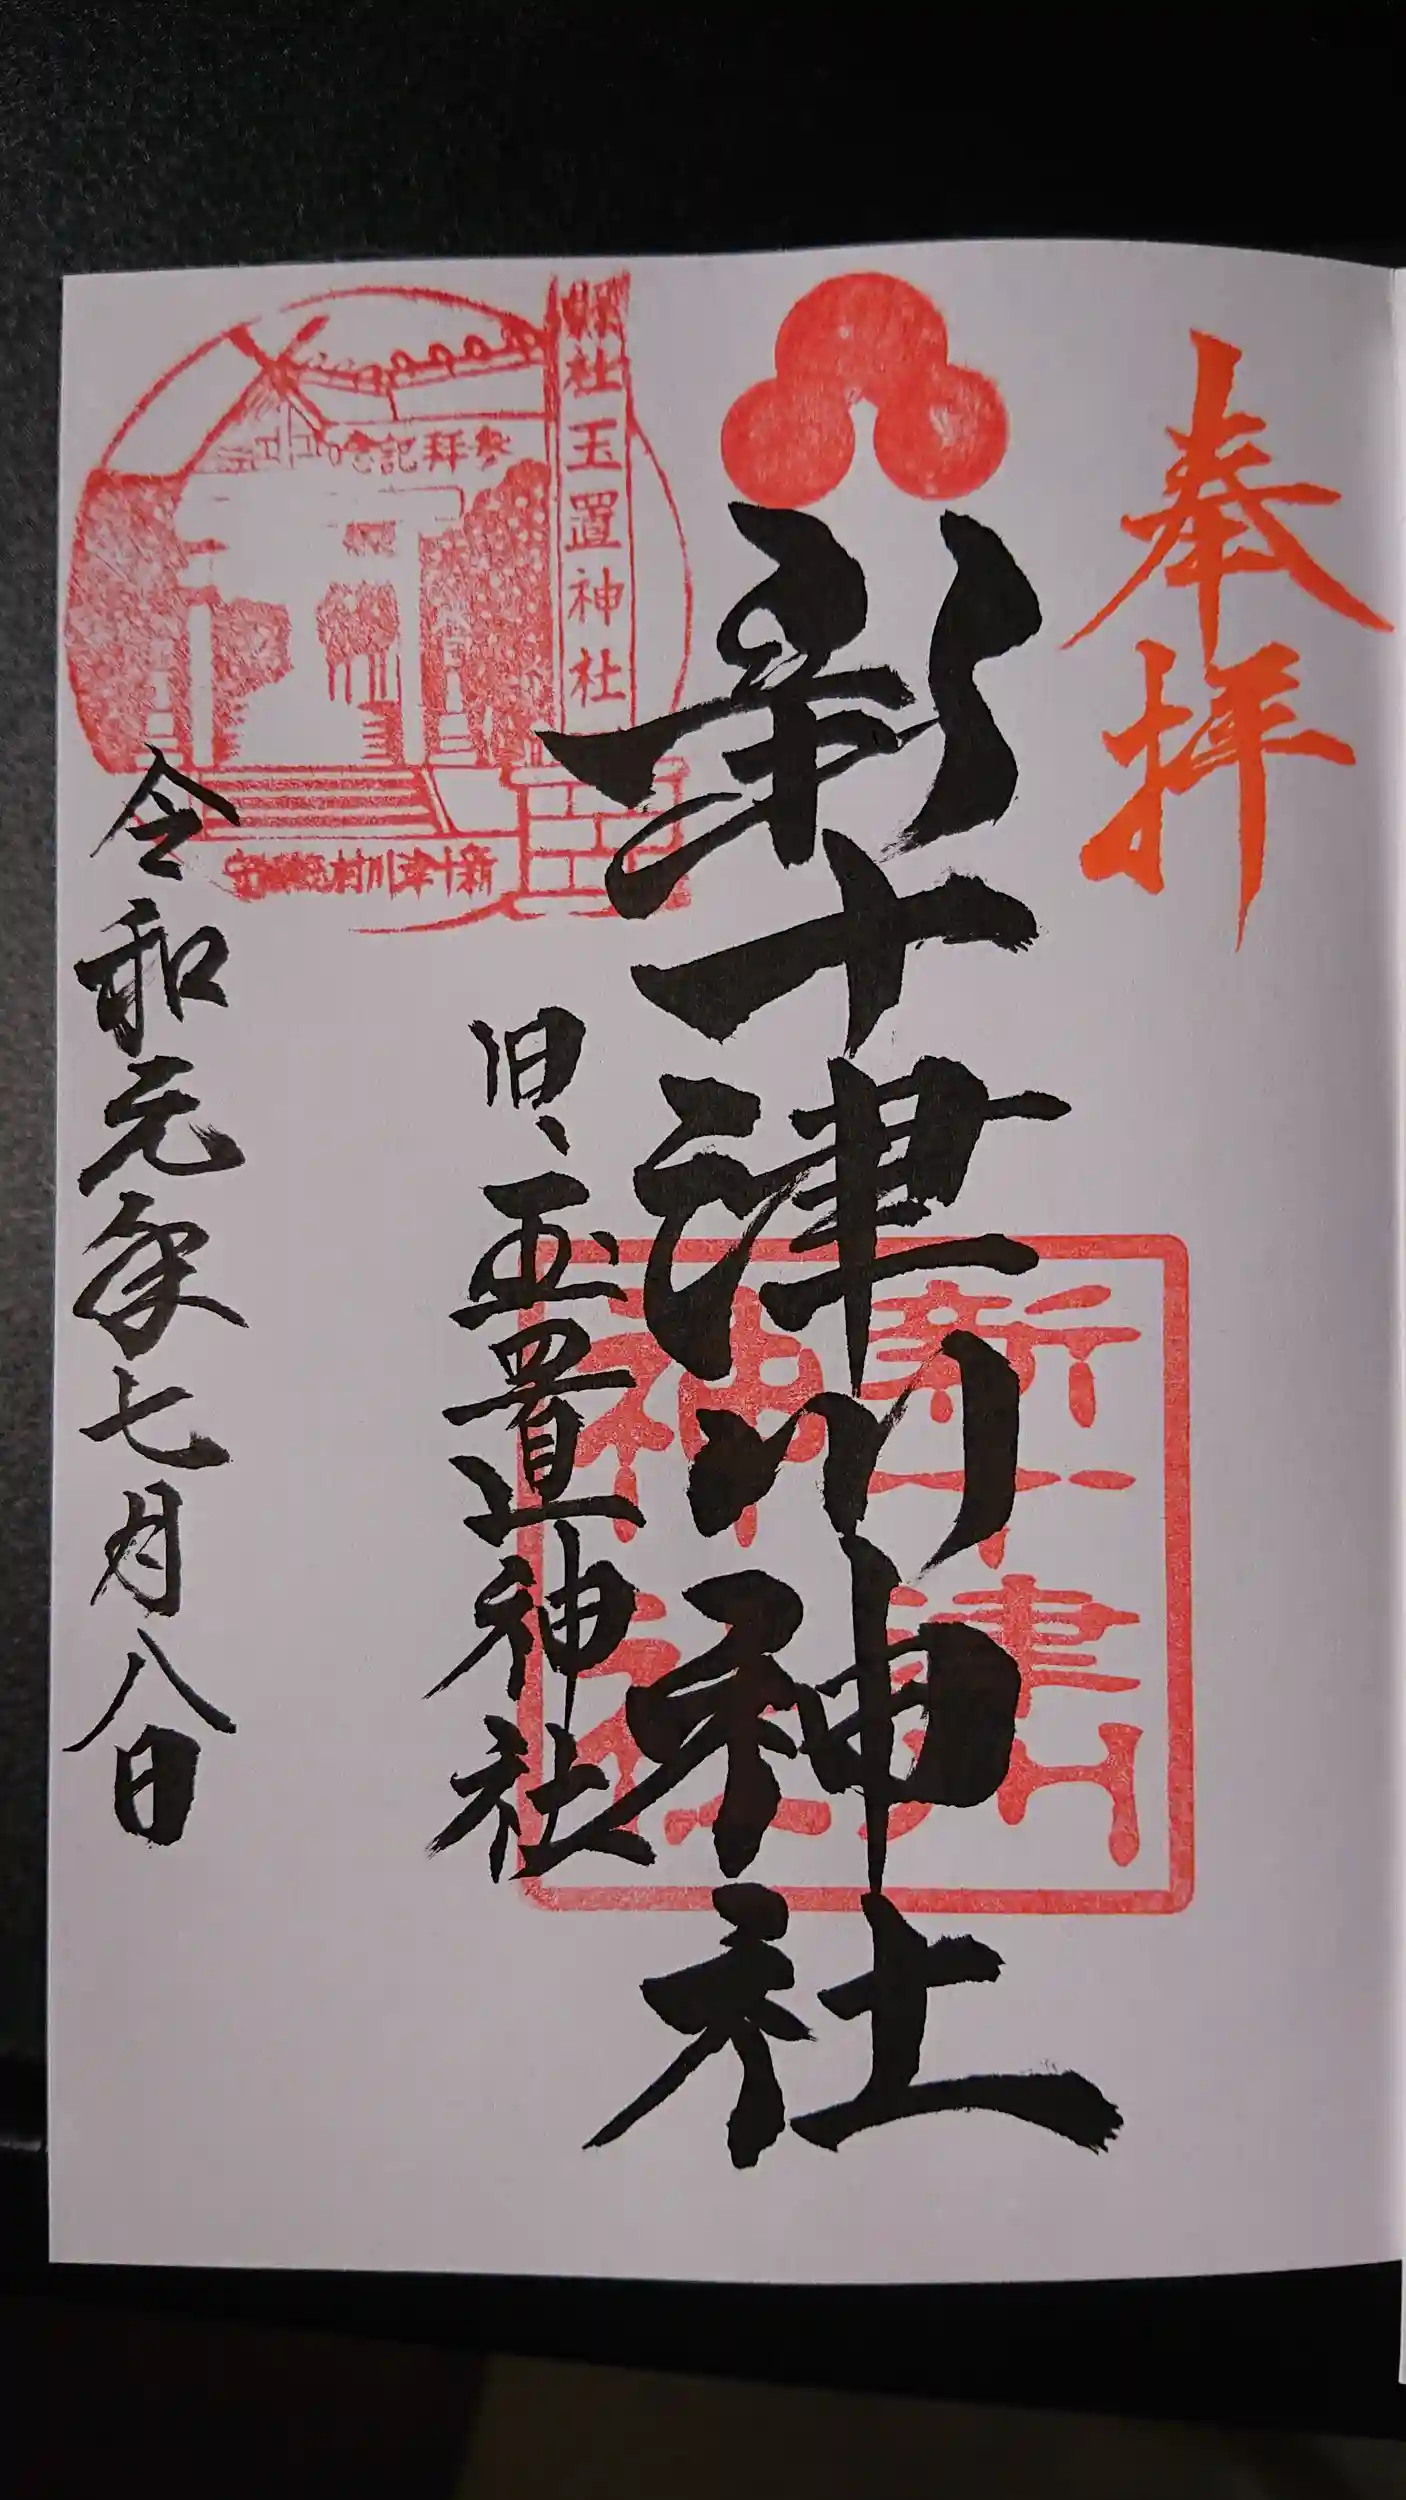 奉拝
新十津川神社
新十津川
神社
旧、玉置神社
縣社 玉置神社
参拝記念
新十津川村
令和元年七月八日